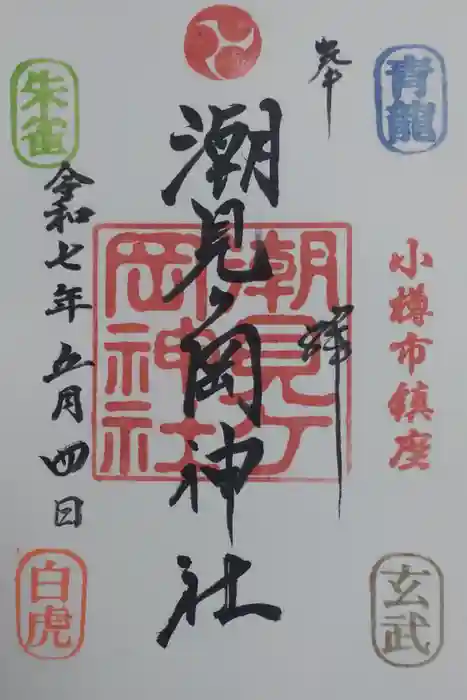 青龍
奉拝
小樽市鎮座
玄武
潮見ヶ岡神社
潮見ケ岡神社
朱雀
令和七年五月四日
白虎